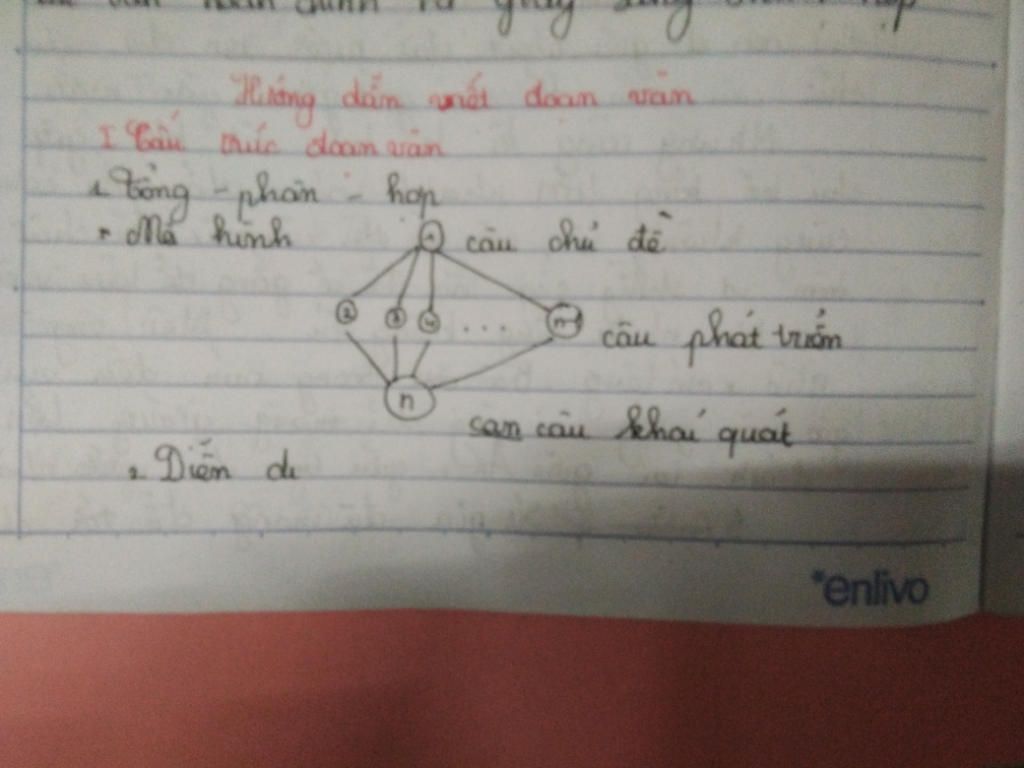 giấy
Hướng dẫn viết đoạn văn
I Cấu trúc đoạn văn
1. Tổng - phân - hợp
Mô hình 1 câu chủ đề
2 3 4 ... n-1 câu phát triển
n câu khái quát
2. Diễn d
*enlivo